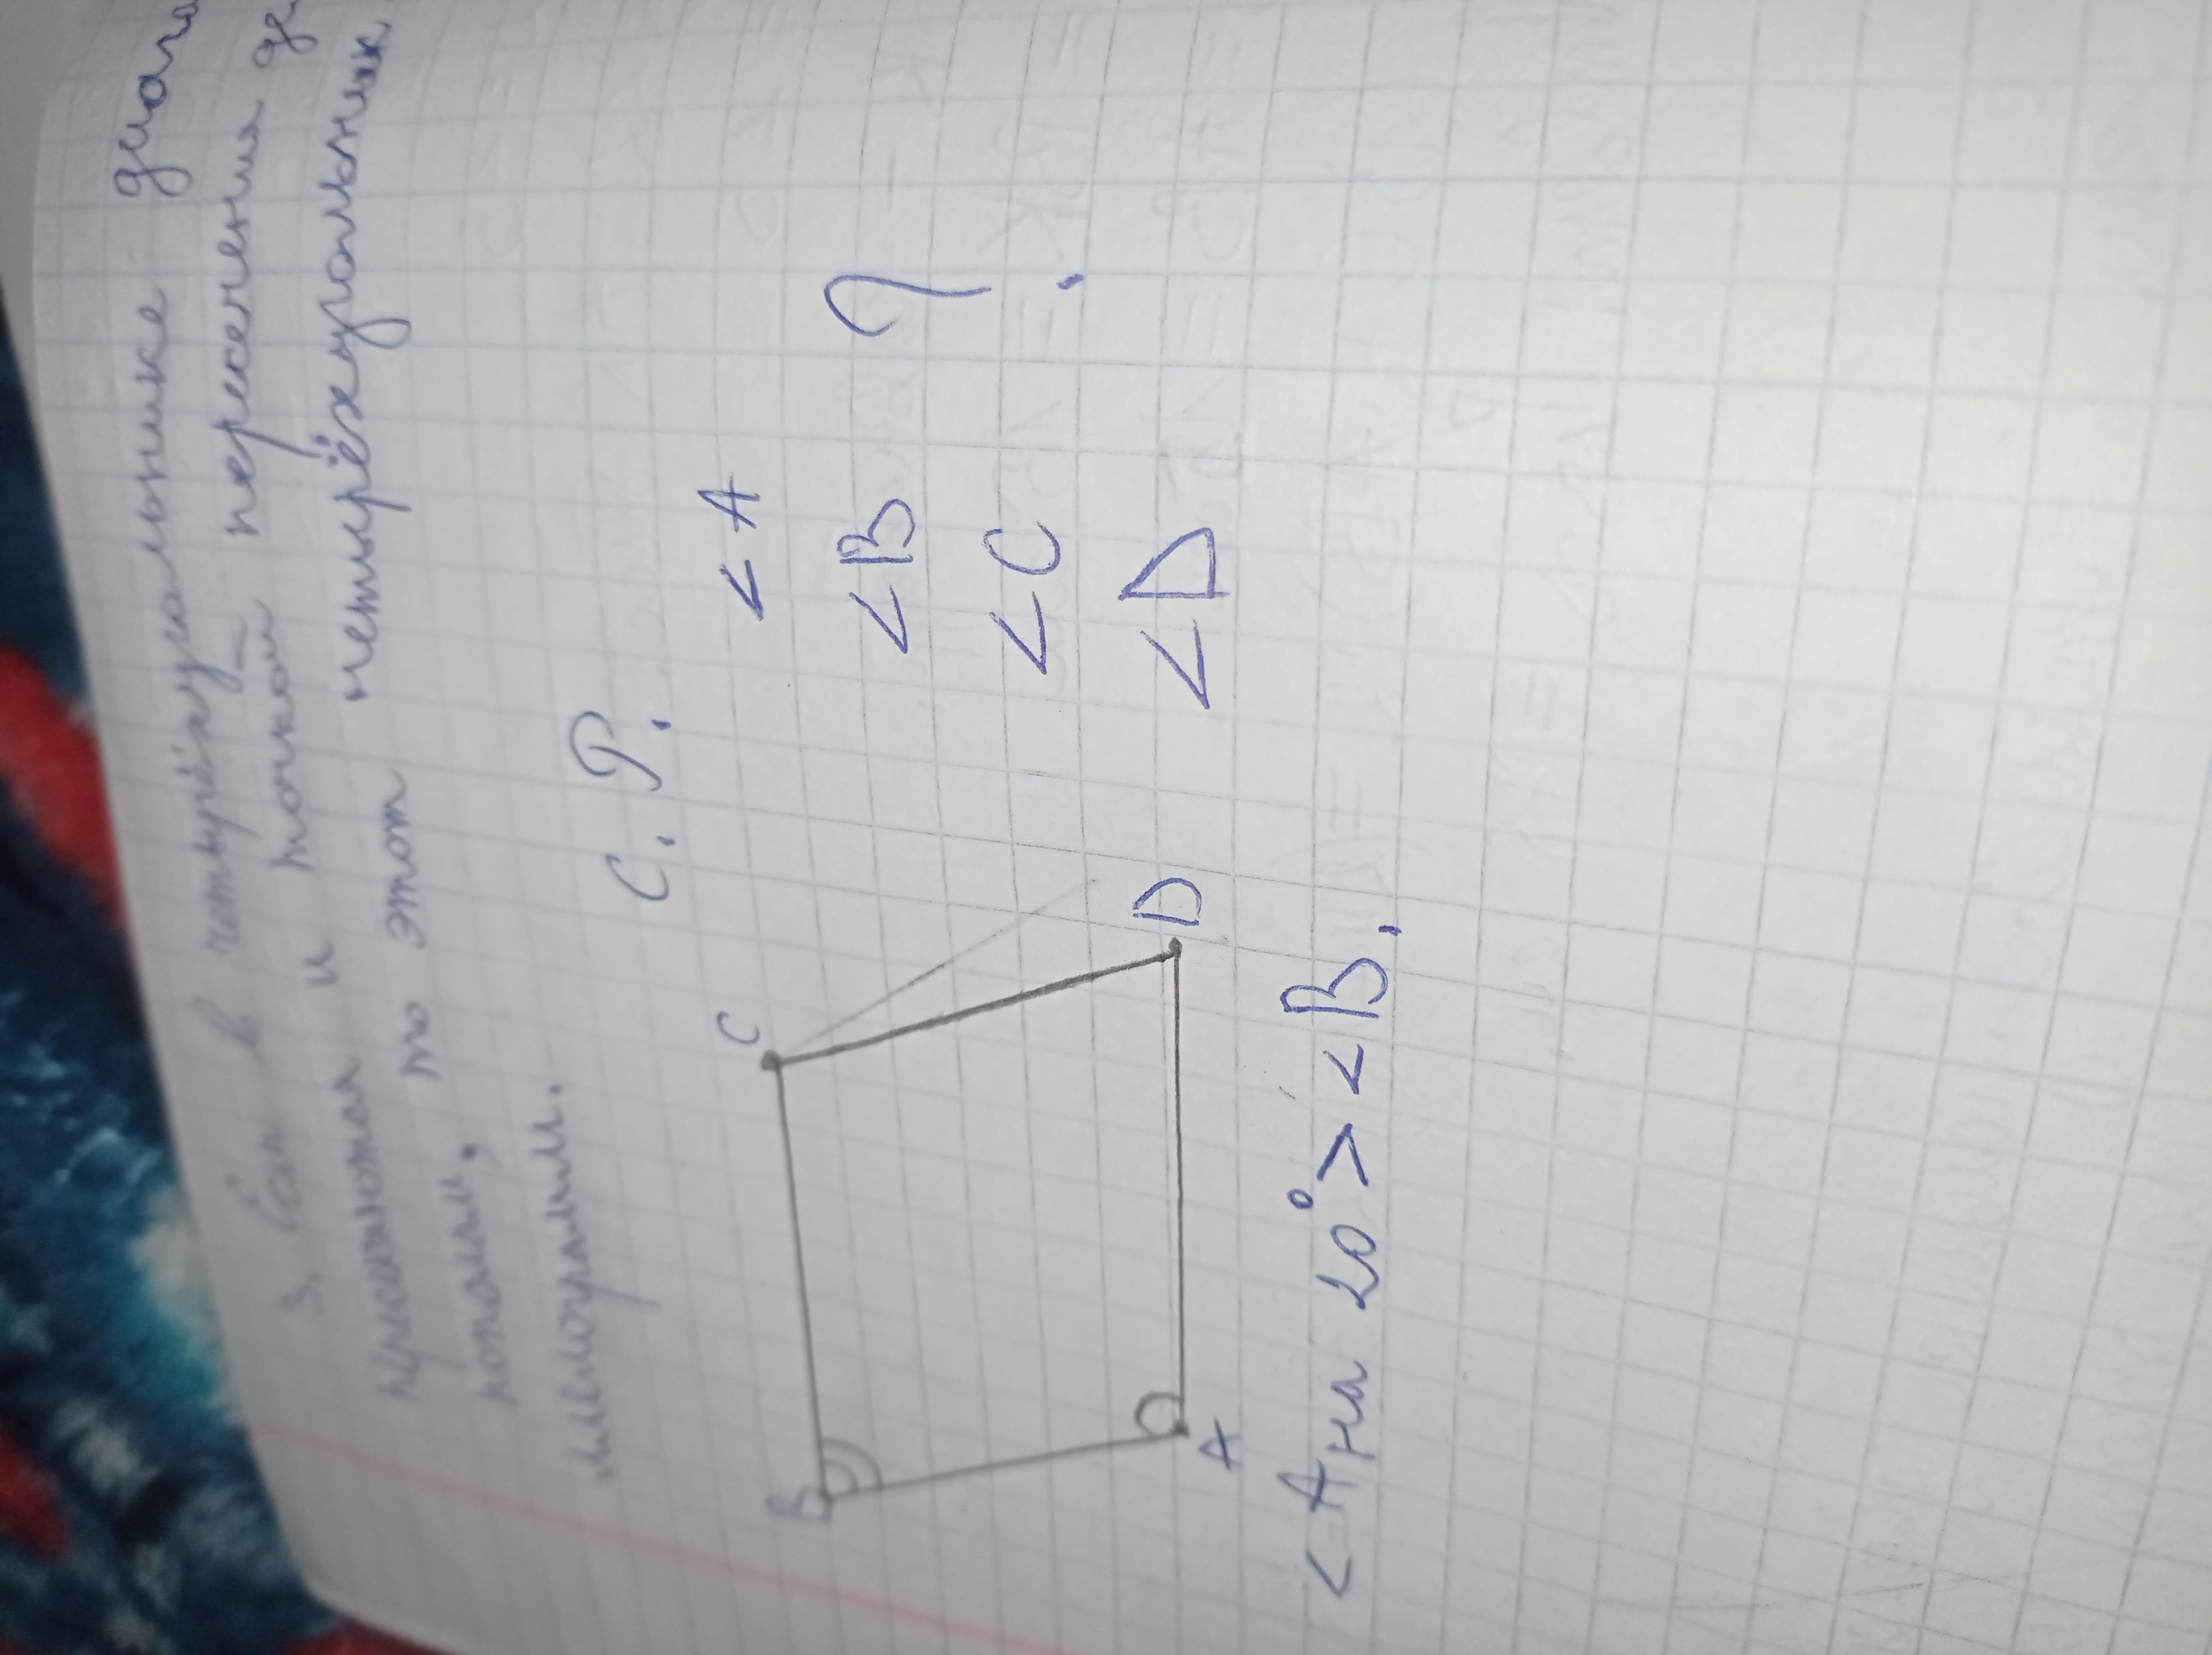 3. Если в четырёхугольнике диаго
пересекаются и точкой пересечения де
пополам, то этот четырёхугольник
ллелограмм.
С. Р.
B
C
A
D
<A
<B
<C
<D
?
<A на 20° > <B.